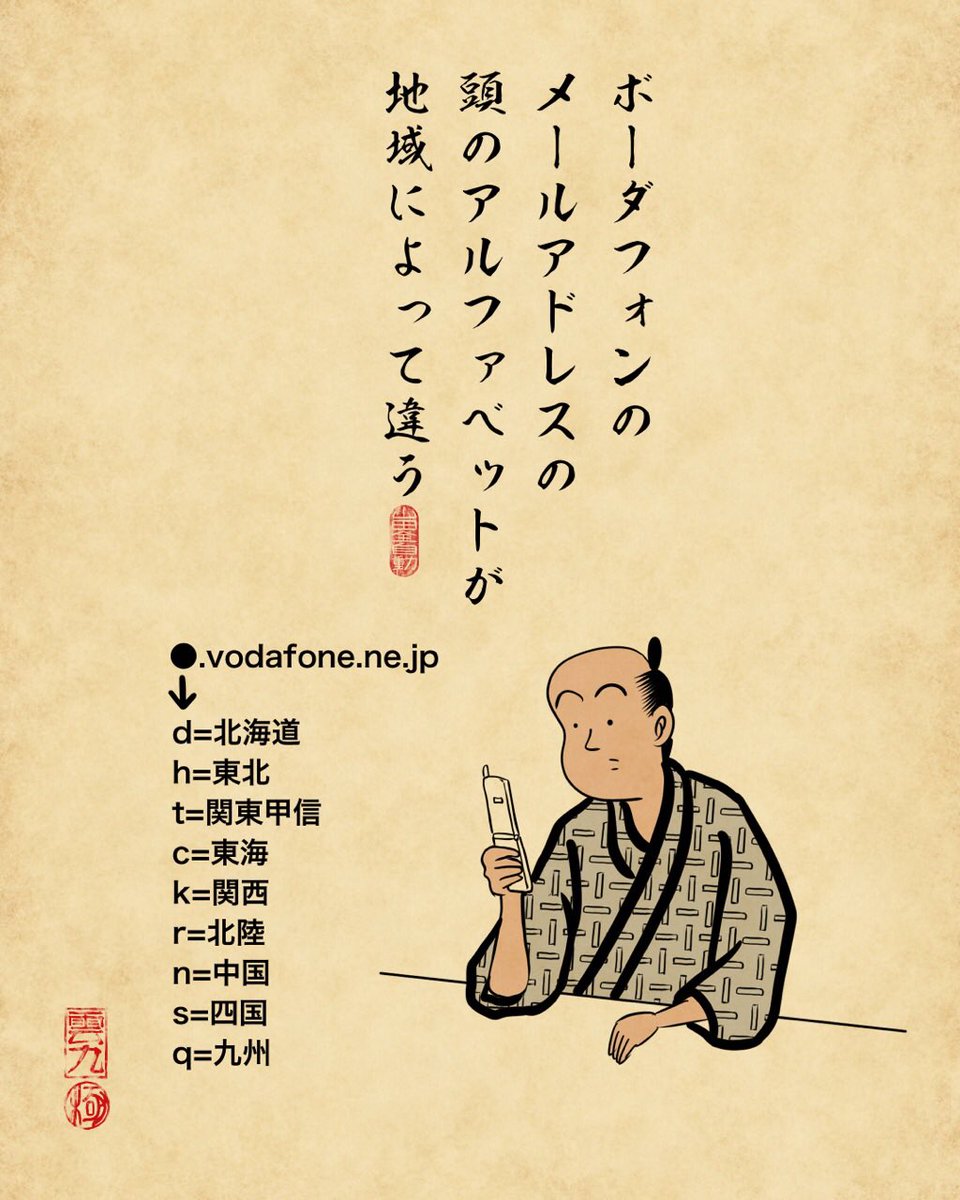 ボーダフォンの
メールアドレスの
頭のアルファベットが
地域によって違う
●.vodafone.ne.jp
↓
d=北海道
h=東北
t=関東甲信
c=東海
k=関西
r=北陸
n=中国
s=四国
q=九州